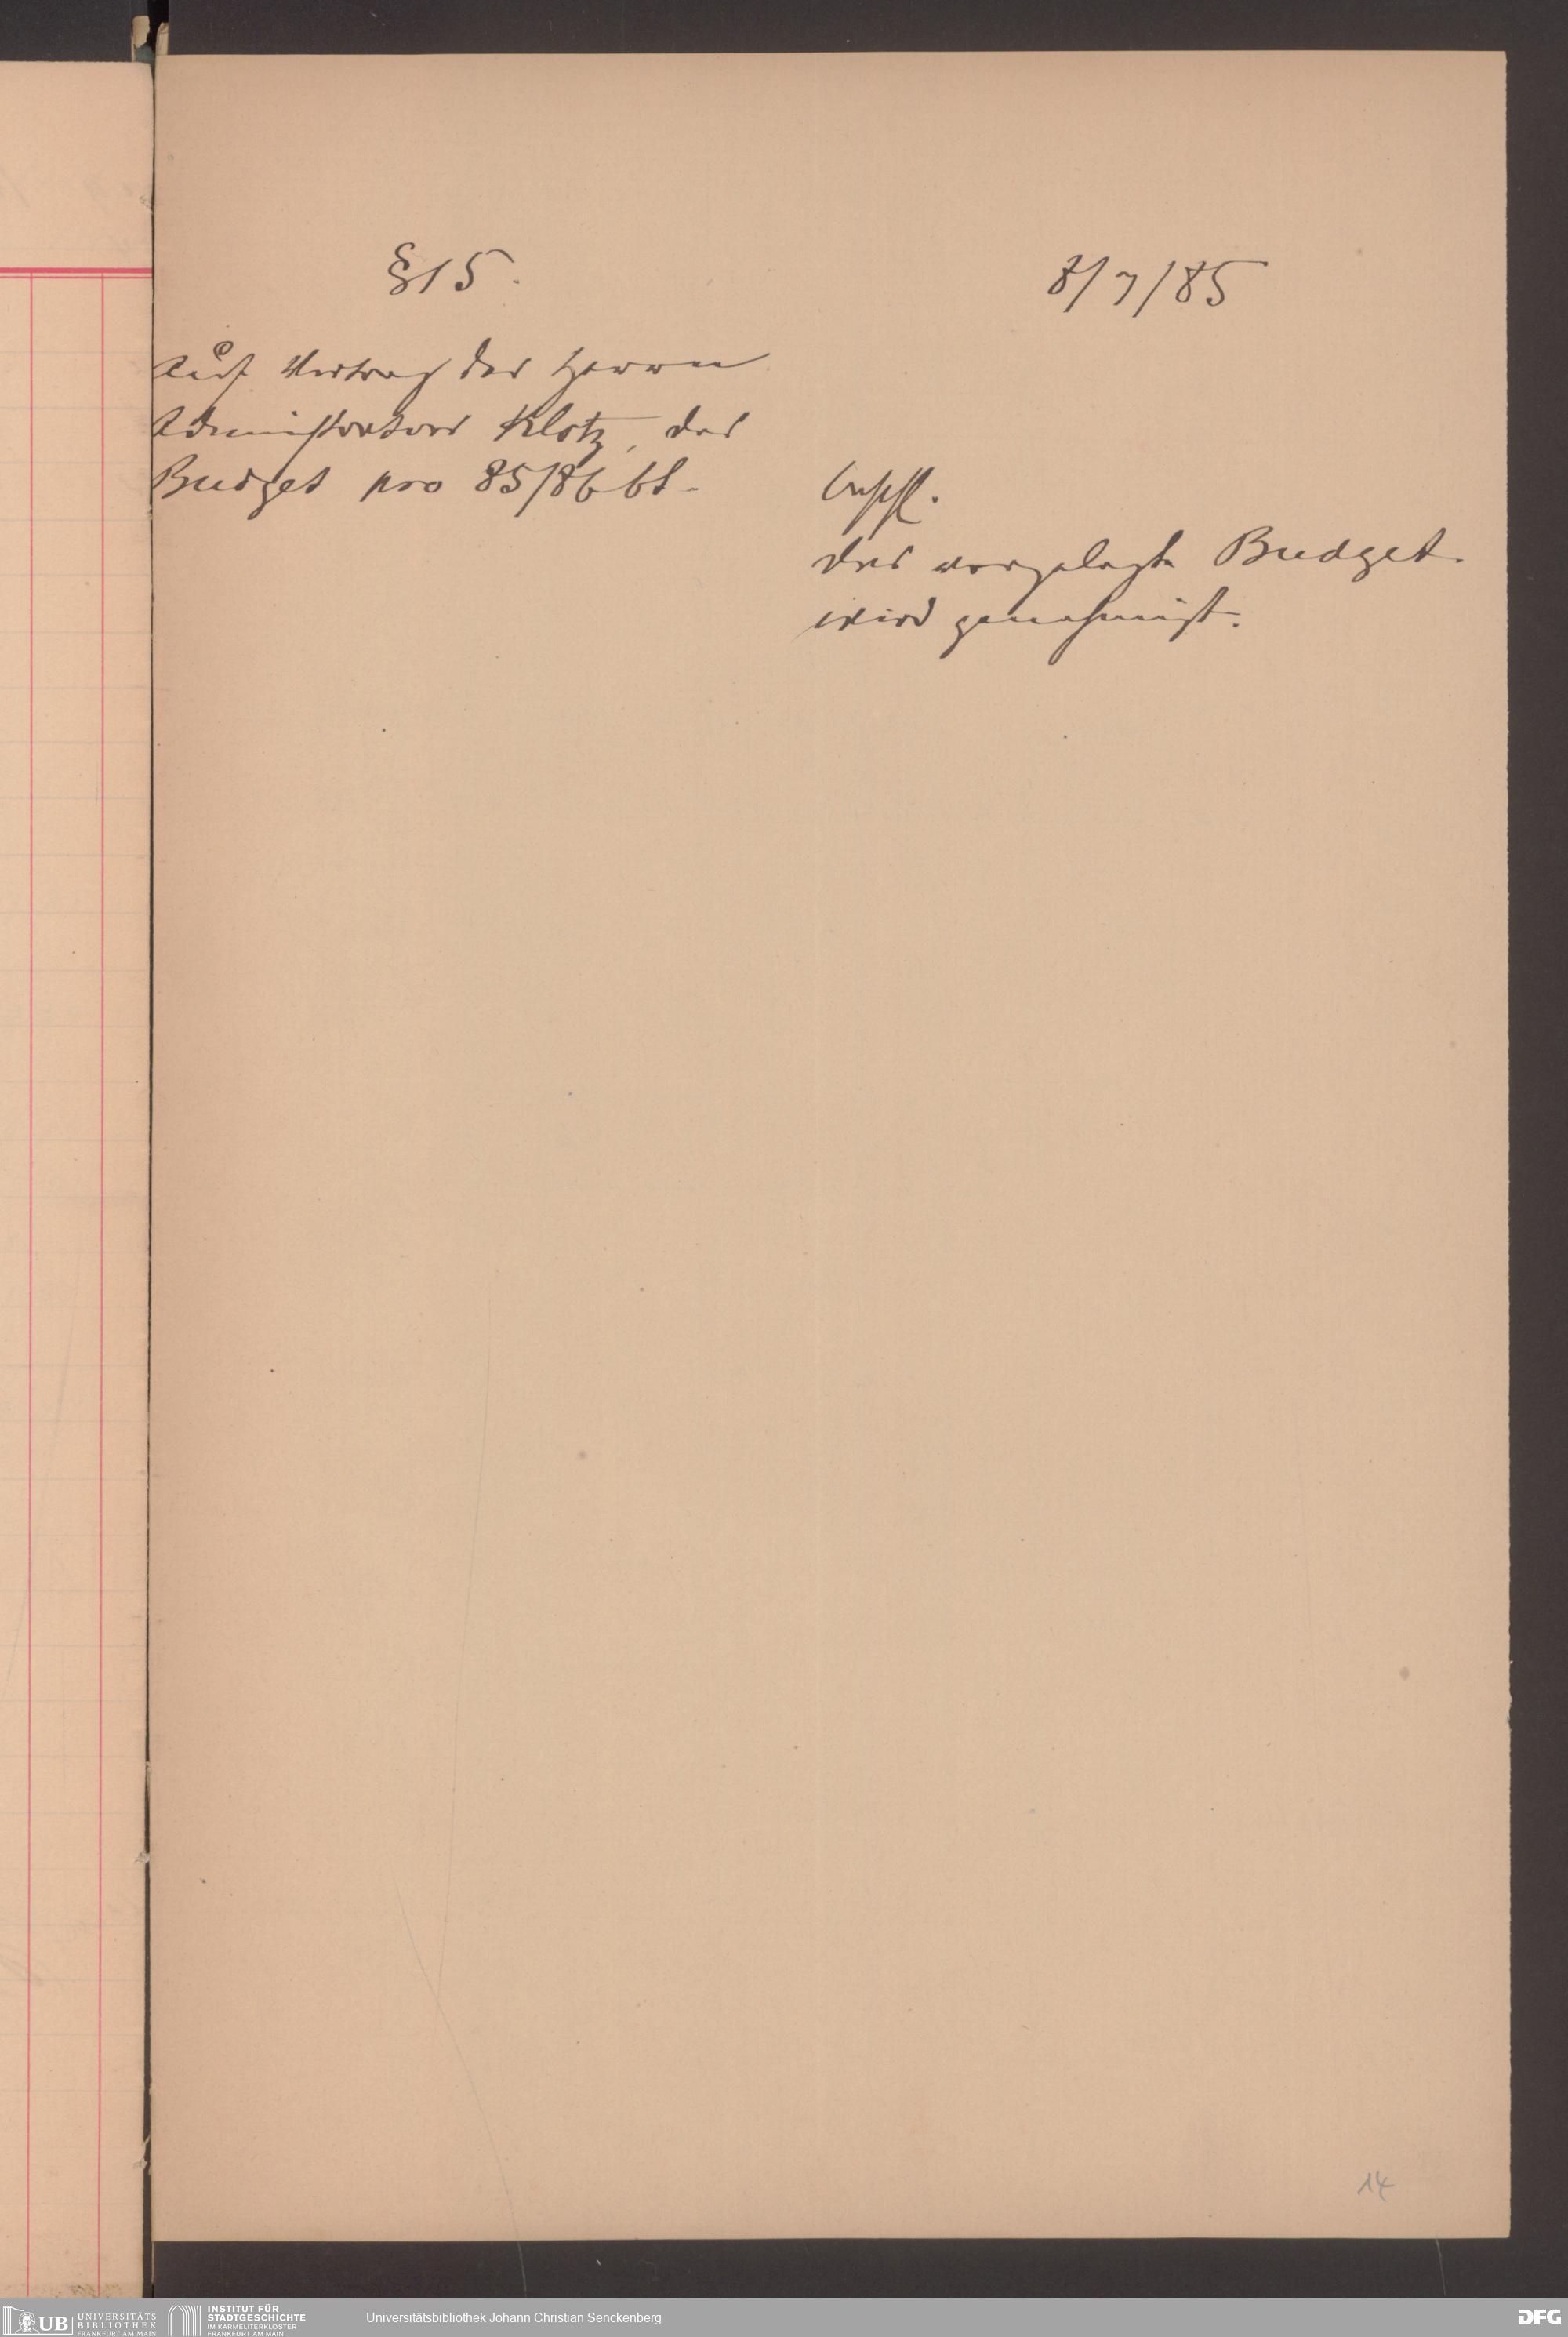 § 15.
8/7/85
Auf Vortrag des Herrn
Administrators Klotz, das
Budget pro 85/86 bt.
Beschl.
Das vorgelegte Budget
wird genehmigt.
14
UB UNIVERSITÄTS
BIBLIOTHEK
FRANKFURT AM MAIN
INSTITUT FÜR
STADTGESCHICHTE
IM KARMELITERKLOSTER
FRANKFURT AM MAIN
Universitätsbibliothek Johann Christian Senckenberg
DFG